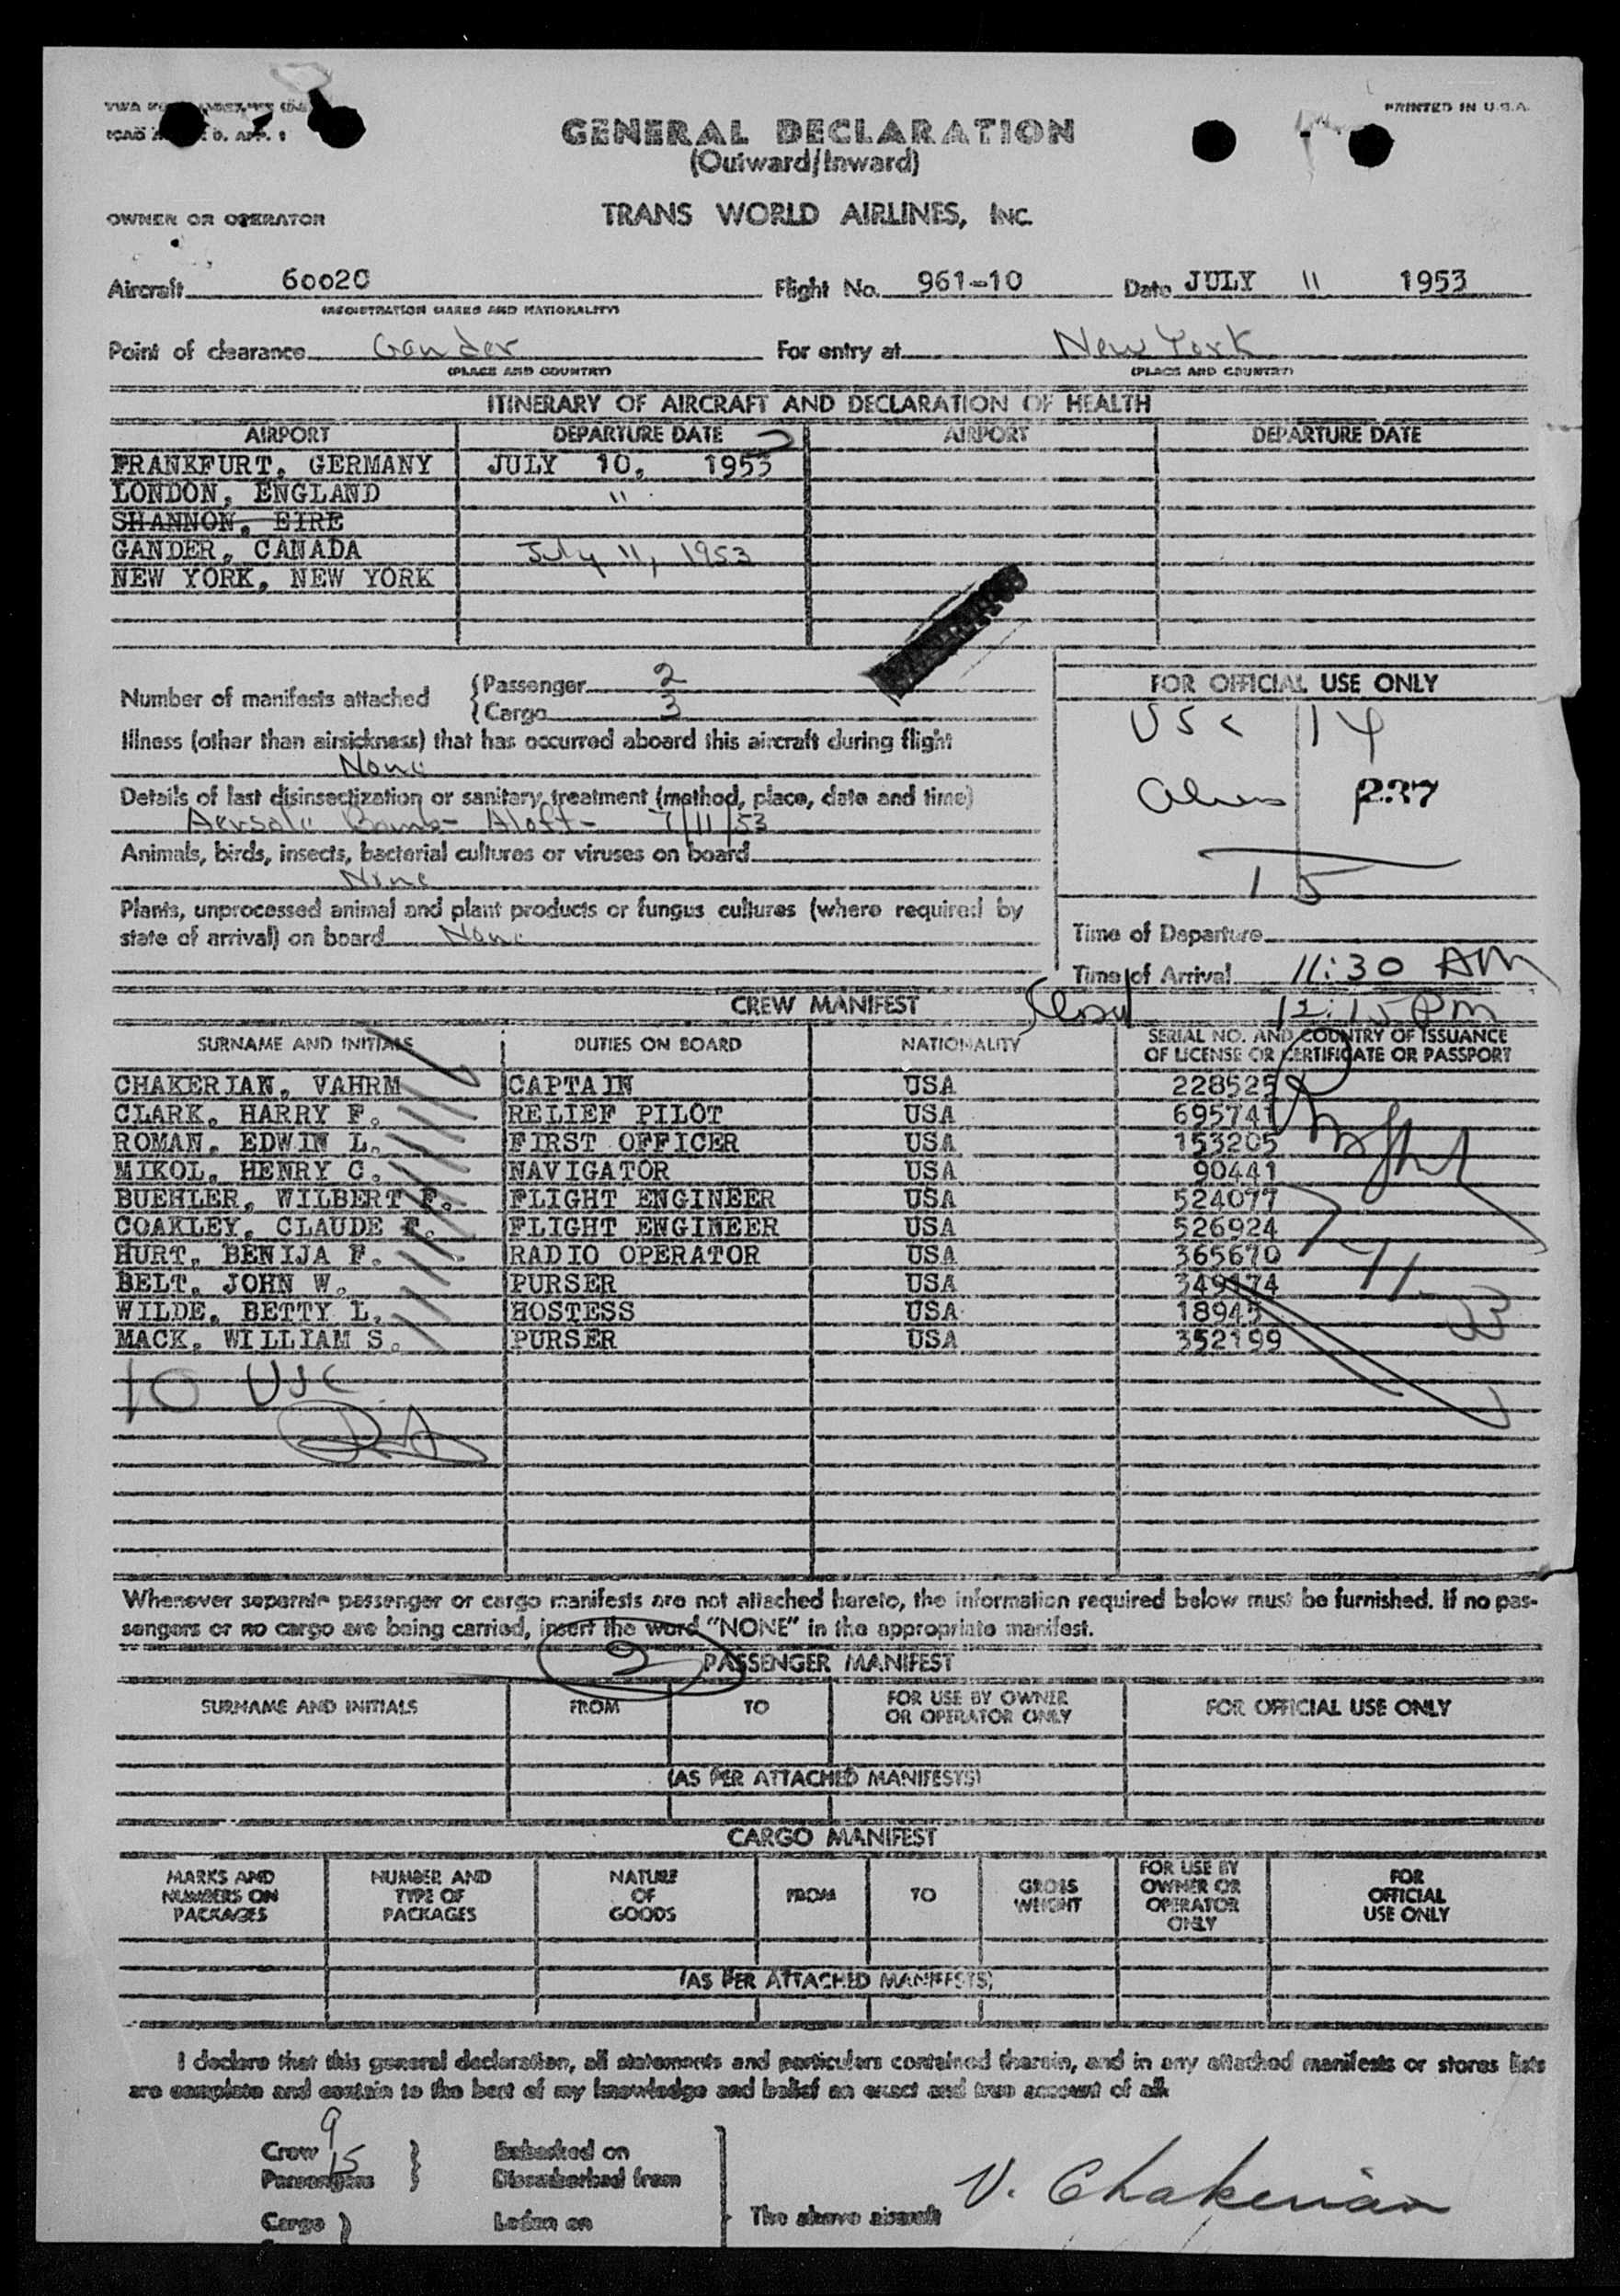 PRINTED IN U.S.A.
GENERAL DECLARATION
(Outward/Inward)
OWNER OR OPERATOR
TRANS WORLD AIRLINES, INC.
Aircraft 60020 Flight No. 961-10 Date JULY 11 1953
(REGISTRATION MARKS AND NATIONALITY)
Point of clearance Gander For entry at New York
(PLACE AND COUNTRY) (PLACE AND COUNTRY)
ITINERARY OF AIRCRAFT AND DECLARATION OF HEALTH
AIRPORT DEPARTURE DATE AIRPORT DEPARTURE DATE
FRANKFURT, GERMANY JULY 10, 1953
LONDON, ENGLAND "
SHANNON, EIRE
GANDER, CANADA July 11, 1953
NEW YORK, NEW YORK
Number of manifests attached
Passenger 2
Cargo 3
Illness (other than airsickness) that has occurred aboard this aircraft during flight
None
Details of last disinsectization or sanitary treatment (method, place, date and time)
Aersole Bomb- Aloft- 7/11/53
Animals, birds, insects, bacterial cultures or viruses on board
None
Plants, unprocessed animal and plant products or fungus cultures (where required by
state of arrival) on board None
FOR OFFICIAL USE ONLY
USC 14
15
Time of Departure
Time of Arrival 11:30 AM
12:15 PM
CREW MANIFEST
SURNAME AND INITIALS DUTIES ON BOARD NATIONALITY SERIAL NO. AND COUNTRY OF ISSUANCE
OF LICENSE OR CERTIFICATE OR PASSPORT
CHAKERIAN, VAHRM CAPTAIN USA 228525
CLARK, HARRY F. RELIEF PILOT USA 695741
ROMAN, EDWIN L. FIRST OFFICER USA 153205
MIKOL, HENRY C. NAVIGATOR USA 90441
BUEHLER, WILBERT F. FLIGHT ENGINEER USA 524077
COAKLEY, CLAUDE T. FLIGHT ENGINEER USA 526924
HURT, BENIJA F. RADIO OPERATOR USA 365670
BELT, JOHN W. PURSER USA 349174
WILDE, BETTY L. HOSTESS USA 18945
MACK, WILLIAM S. PURSER USA 352199
7-11-53
10 USC
Whenever separate passenger or cargo manifests are not attached hereto, the information required below must be furnished. If no pas-
sengers or no cargo are being carried, insert the word "NONE" in the appropriate manifest.
2
PASSENGER MANIFEST
SURNAME AND INITIALS FROM TO FOR USE BY OWNER OR OPERATOR ONLY FOR OFFICIAL USE ONLY
(AS PER ATTACHED MANIFESTS)
CARGO MANIFEST
MARKS AND NUMBERS ON PACKAGES NUMBER AND TYPE OF PACKAGES NATURE OF GOODS FROM TO GROSS WEIGHT FOR USE BY OWNER OR OPERATOR ONLY FOR OFFICIAL USE ONLY
(AS PER ATTACHED MANIFESTS)
I declare that this general declaration, all statements and particulars contained therein, and in any attached manifests or stores lists
are complete and contain to the best of my knowledge and belief an exact and true account of all
Crew 9 Embarked on
Passengers 15 Disembarked from
Cargo Laden on The above aircraft V. Chakerian